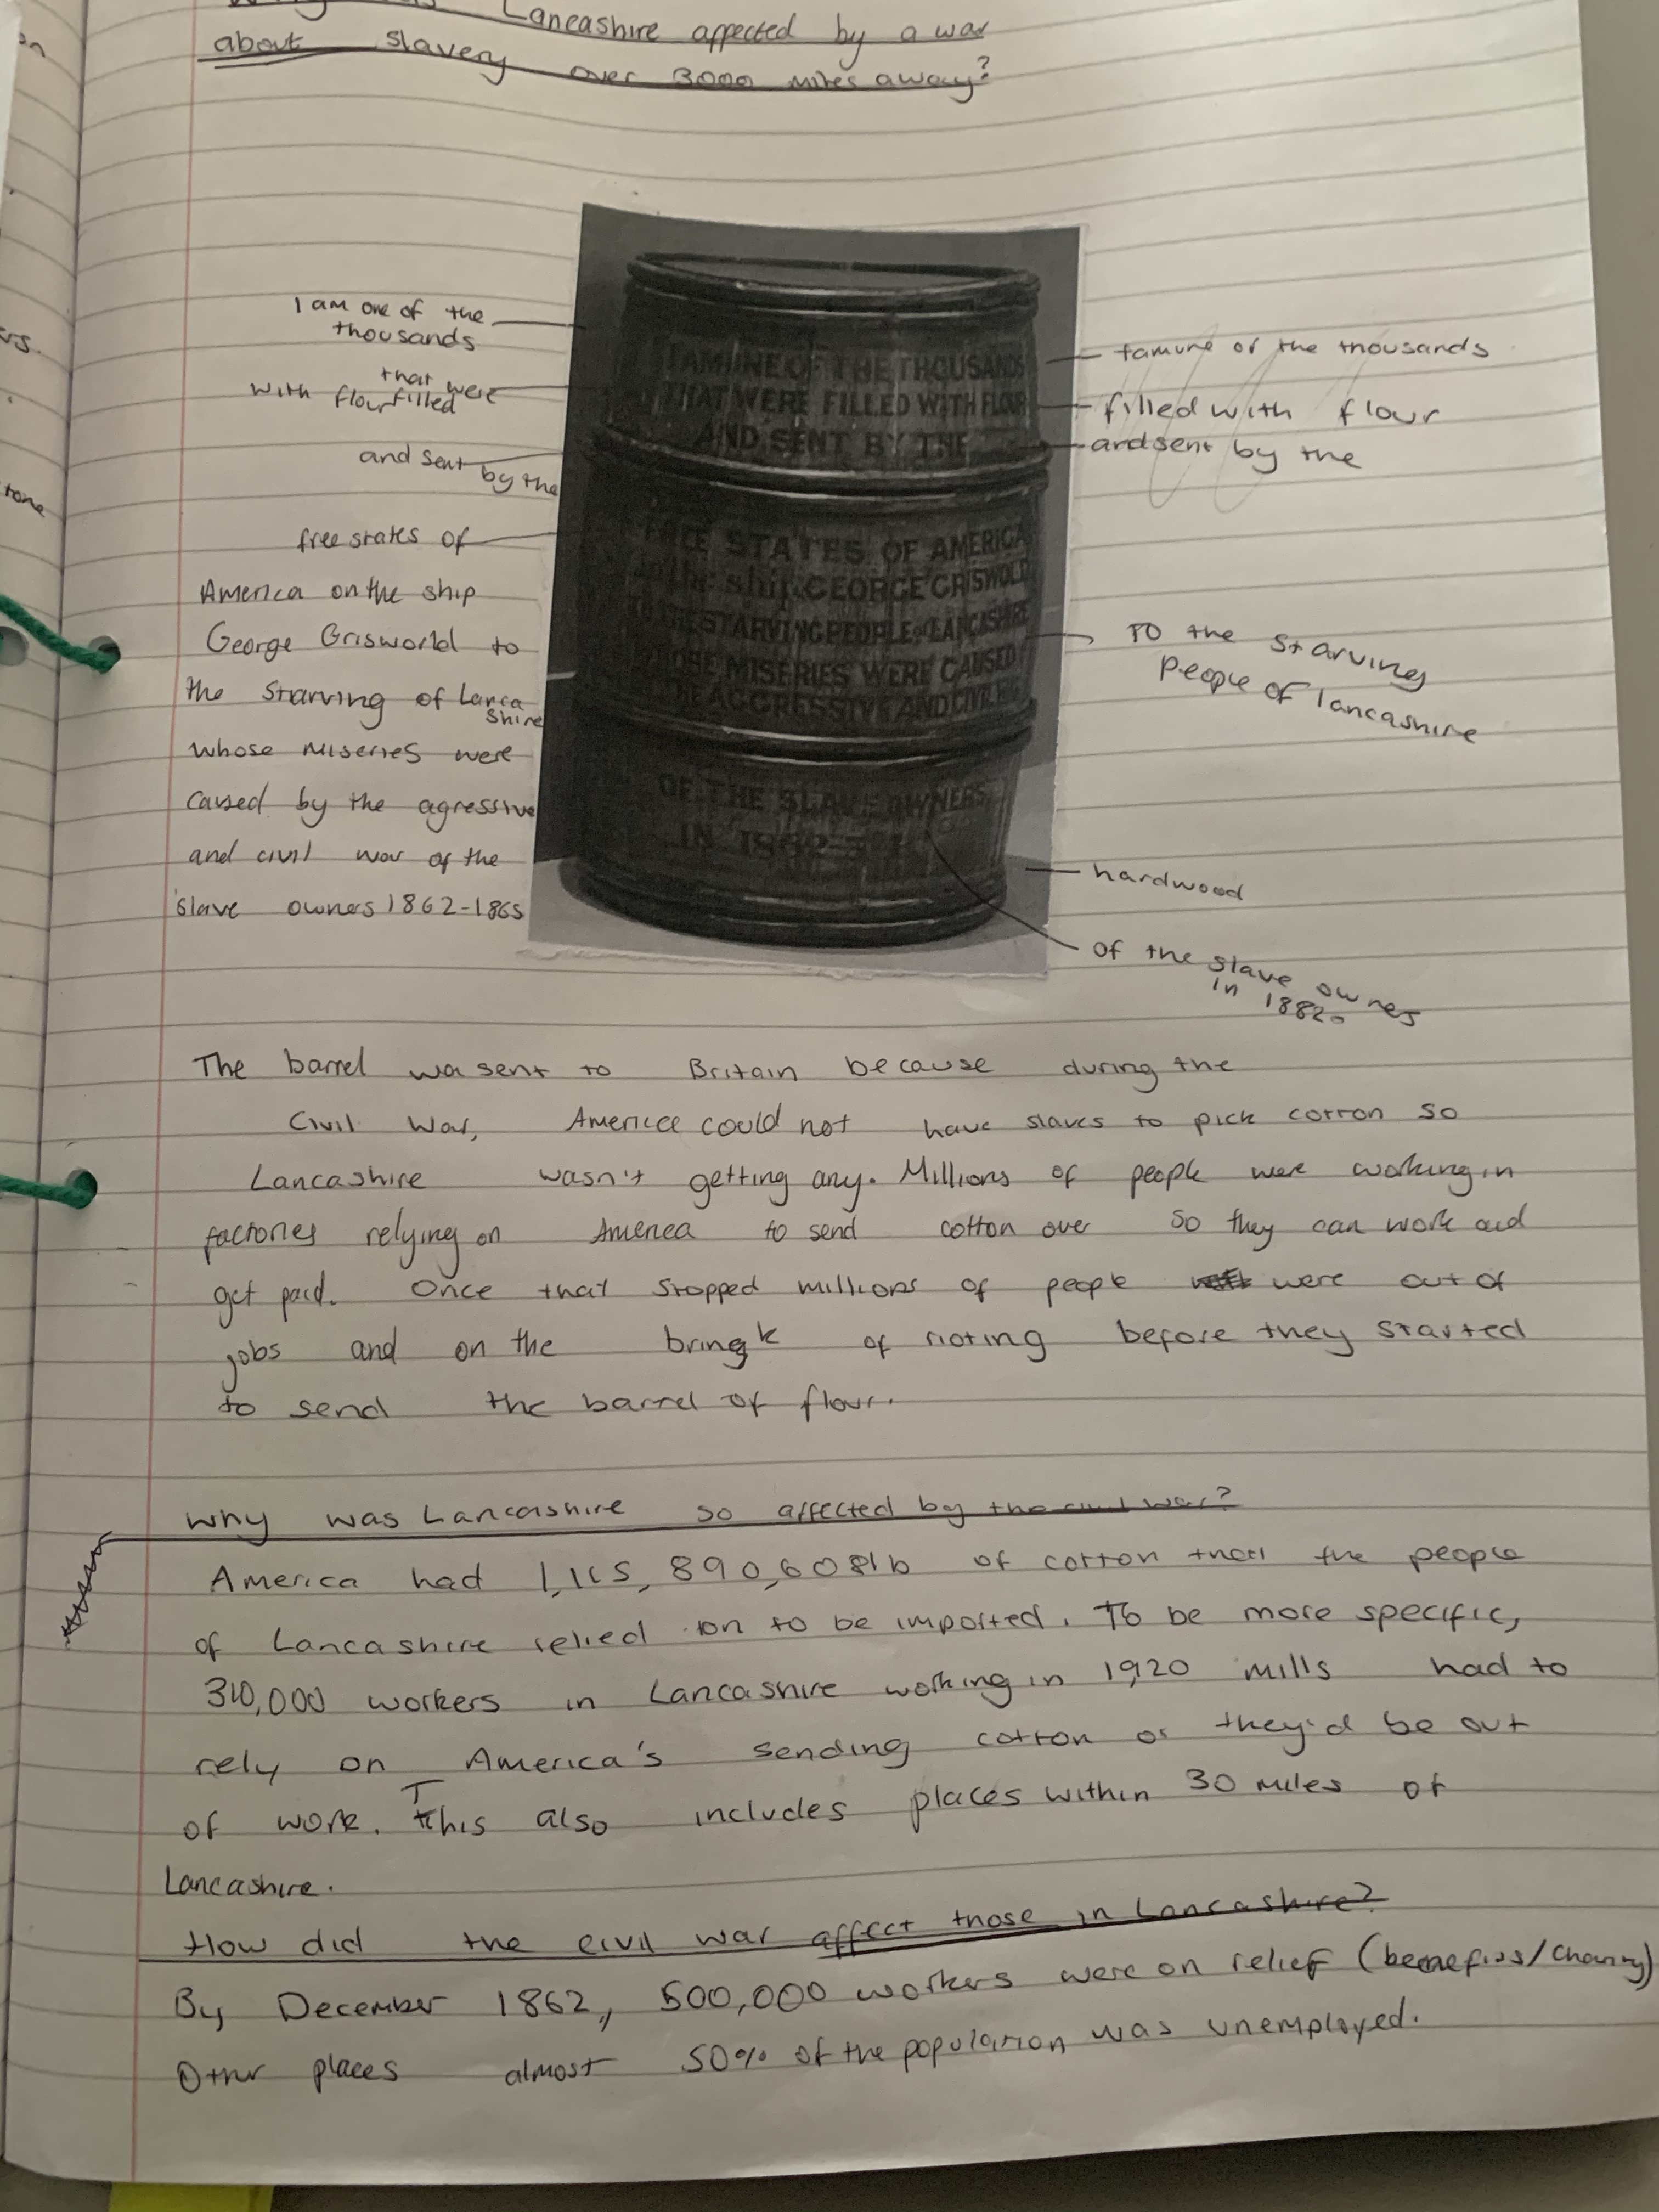 Lancashire affected by a war
about slavery over 3000 miles away?
I am one of the
thousands
that were
with flour filled
and sent
by the
free states of
America on the ship
George Grisworld to
the starving of Lanca
shire
whose miseries were
caused by the agressive
and civil war of the
slave owners 1862-1865
I AM ONE OF THE THOUSANDS
THAT WERE FILLED WITH FLOUR
AND SENT BY THE
FREE STATES OF AMERICA
in the ship GEORGE GRISWOLD
TO THE STARVING PEOPLE of LANCASHIRE
WHOSE MISERIES WERE CAUSED
THE AGGRESSIVE AND CIVIL
OF THE SLAVE OWNERS
IN 1862-
famine of the thousands
filled with flour
and sent by the
To the starving
people of lancashire
hardwood
of the slave owners
in 1882
The barrel wa sent to Britain because during the
Civil War, America could not have slaves to pick cotton so
Lancashire wasn't getting any. Millions of people were working in
factories relying on America to send cotton over so they can work and
get paid. Once that stopped millions of people were out of
jobs and on the bringk of rioting before they started
to send the barrel of flour.
Why was Lancashire so affected by the civil war?
America had 1,115,890,608lb of cotton that the people
of Lancashire relied on to be imported. To be more specific,
310,000 workers in Lancashire working in 1,920 mills had to
rely on America's sending cotton or they'd be out
of work. This also includes places within 30 miles of
Lancashire.
How did the civil war affect those in Lancashire?
By December 1862, 500,000 workers were on relief (benefits/charity)
Other places almost 50% of the population was unemployed.